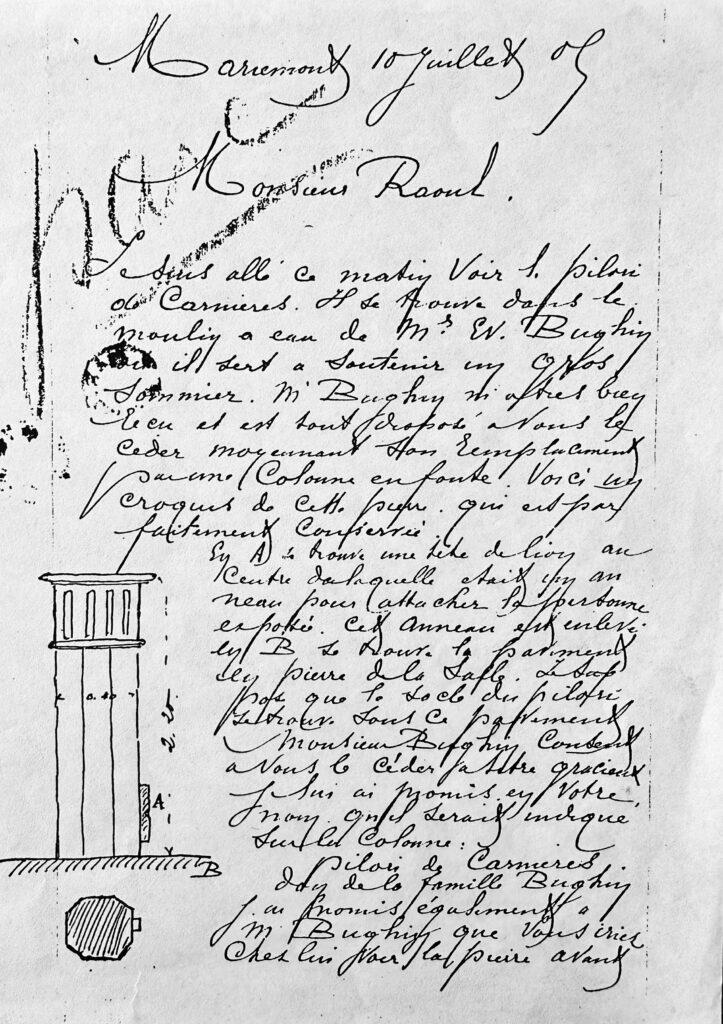 Mariemont 10 Juillet 05
Monsieur Raoul.
Je suis allé ce matin voir le pilori
de Carnières. Il se trouve dans le
moulin a eau de Mr Ev. Bughin
ou il sert a soutenir un gros
sommier. M Bughin m'a très bien
recu et est tout disposé a vous le
ceder moyennant son remplacement
par une Colonne en fonte. Voici un
croquis de cette pierre qui est par
faitement conservée.
En A) se trouve une tête de lion au
centre de laquelle etait un an
neau pour attacher la personne
exposée. Cet anneau est enlevé
en B se trouve le pavement
en pierre de la salle. Je sup
pose que le socle du pilori
se trouve sous ce pavement
Monsieur Bughin consent
a vous le céder a titre gracieux
Je lui ai promis en votre
nom qu'il serait indiqué
sur la Colonne :
Pilori de Carnières.
don de la famille Bughin
J'ai promis également a
M Bughin que vous iriez
chez lui voir la pierre avant
0.40
2.20
A
B